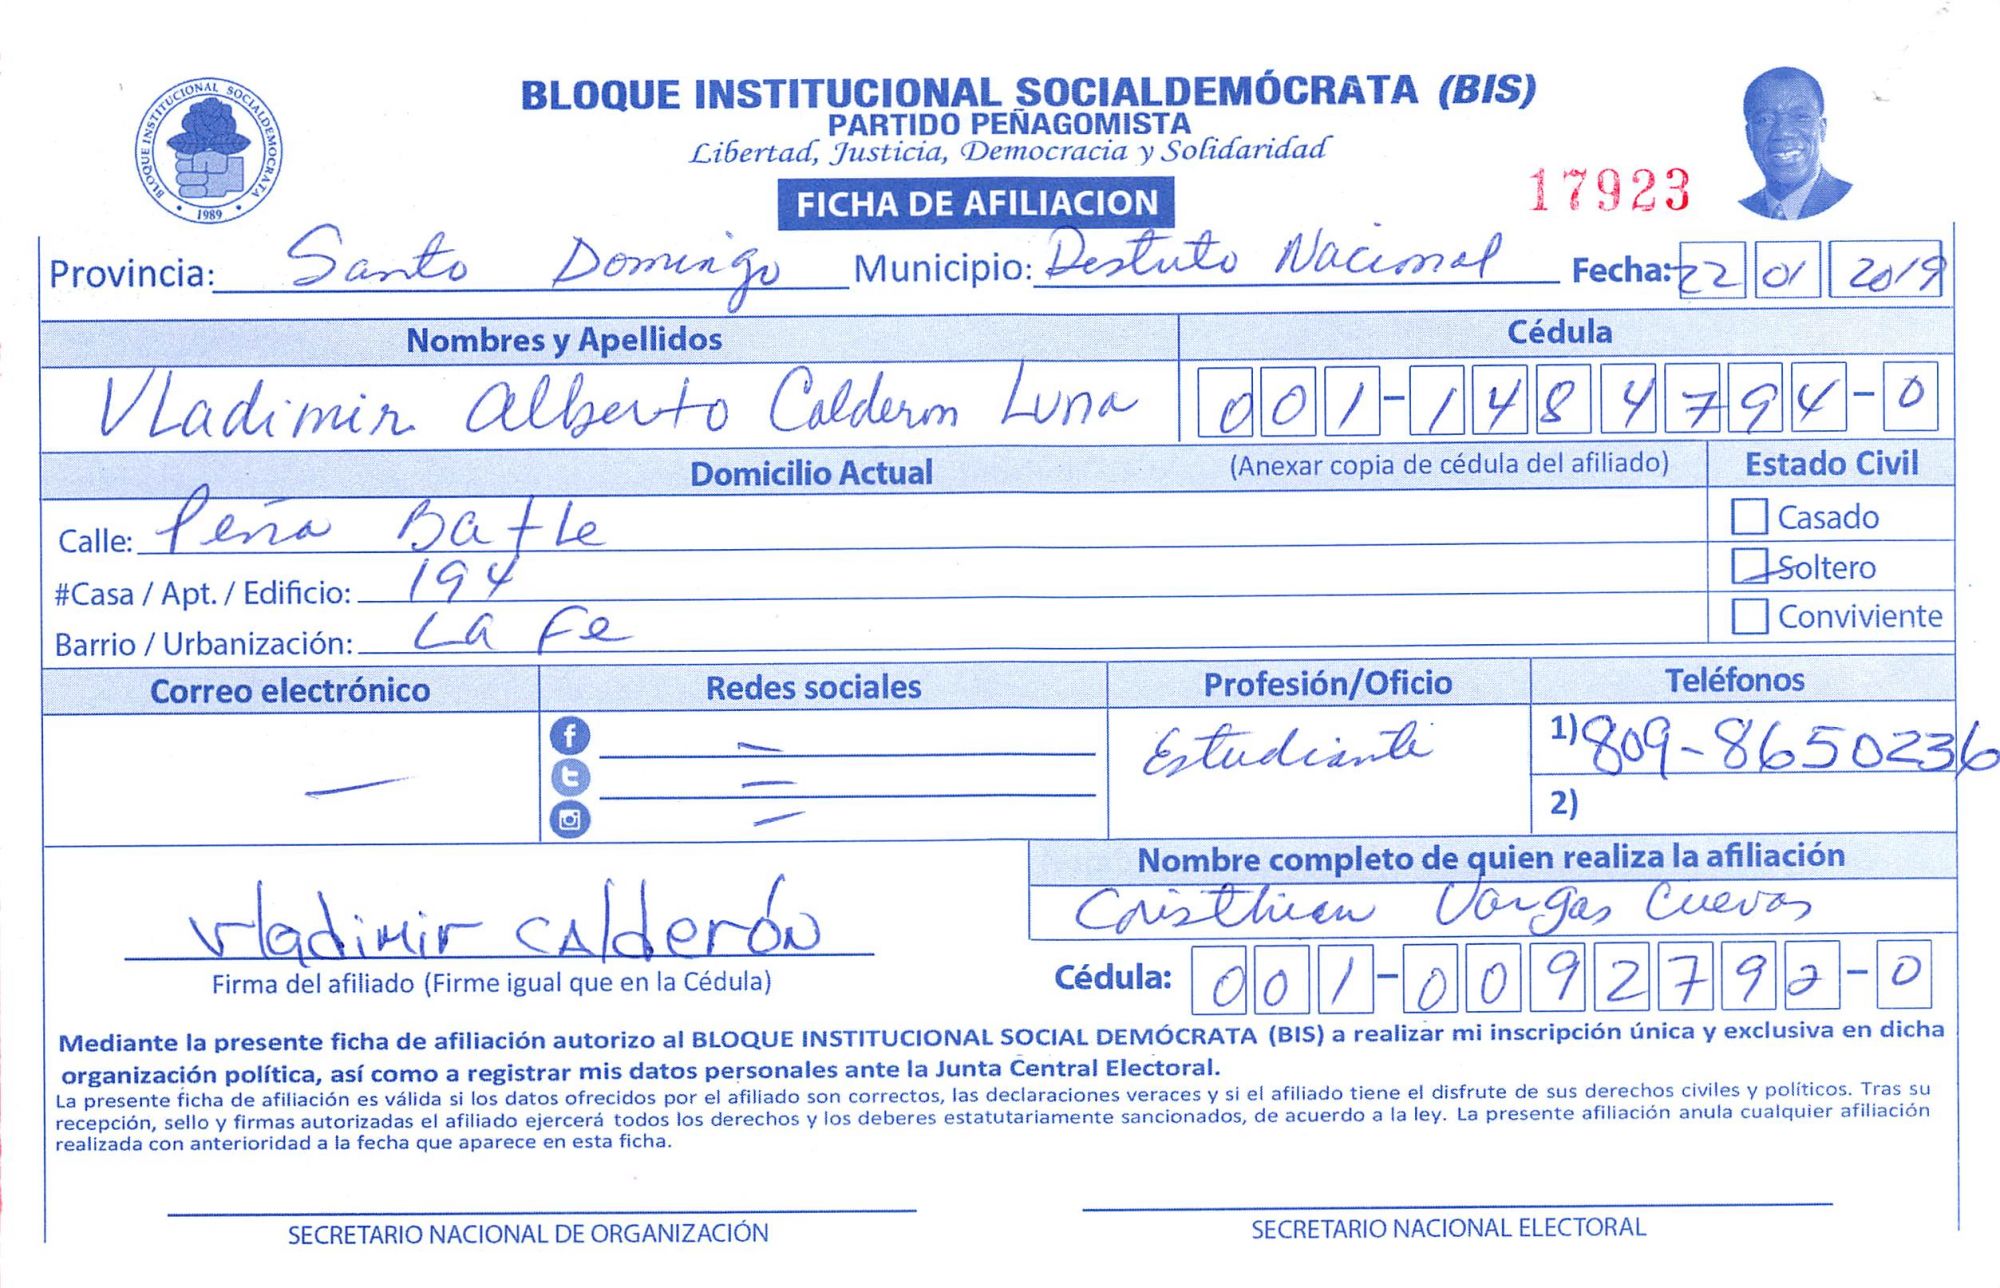 BLOQUE INSTITUCIONAL SOCIALDEMÓCRATA (BIS)
PARTIDO PEÑAGOMISTA
Libertad, Justicia, Democracia y Solidaridad
FICHA DE AFILIACION
17923
BLOQUE INSTITUCIONAL SOCIALDEMOCRATA
1989
Provincia: Santo Domingo Municipio: Destrito Nacional Fecha: 22 01 2019
Nombres y Apellidos Cédula
Vladimir Alberto Calderon Luna 001-1484794-0
Domicilio Actual (Anexar copia de cédula del afiliado) Estado Civil
Calle: Peña Batle
Casado
#Casa / Apt. / Edificio: 194
Soltero
Barrio / Urbanización: La Fe
Conviviente
Correo electrónico Redes sociales Profesión/Oficio Teléfonos
— f — Estudiante 1) 809-8650236
t —
— 2)
Nombre completo de quien realiza la afiliación
Cristhian Vargas Cuevas
Vladimir Calderón
Firma del afiliado (Firme igual que en la Cédula)
Cédula: 001-0092792-0
Mediante la presente ficha de afiliación autorizo al BLOQUE INSTITUCIONAL SOCIAL DEMÓCRATA (BIS) a realizar mi inscripción única y exclusiva en dicha
organización política, así como a registrar mis datos personales ante la Junta Central Electoral.
La presente ficha de afiliación es válida si los datos ofrecidos por el afiliado son correctos, las declaraciones veraces y si el afiliado tiene el disfrute de sus derechos civiles y políticos. Tras su
recepción, sello y firmas autorizadas el afiliado ejercerá todos los derechos y los deberes estatutariamente sancionados, de acuerdo a la ley. La presente afiliación anula cualquier afiliación
realizada con anterioridad a la fecha que aparece en esta ficha.
SECRETARIO NACIONAL DE ORGANIZACIÓN
SECRETARIO NACIONAL ELECTORAL